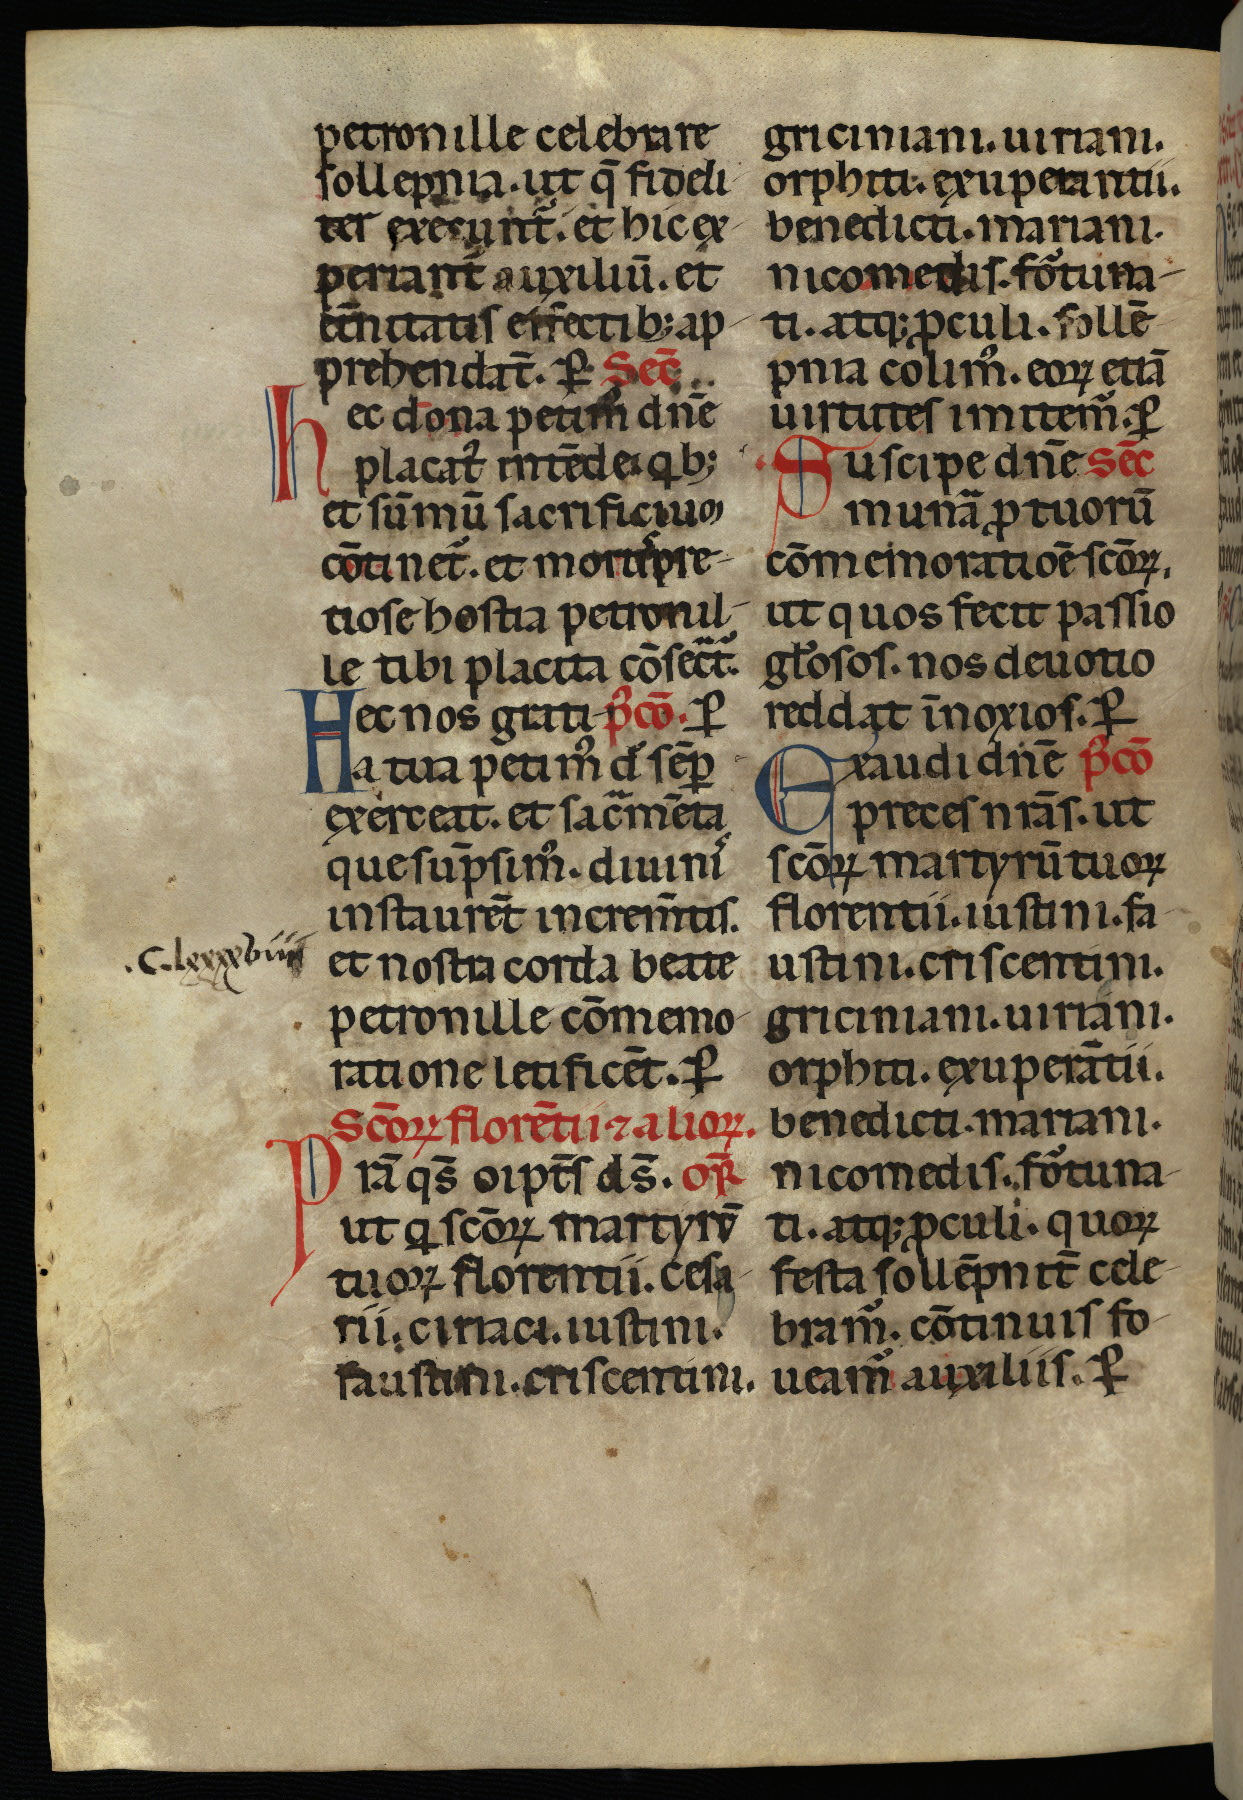 petronille celebrare
sollepnia. ut q̄ fideli
ter exequnt᷑. et hic ex-
periant᷑ auxiliū. et
et̄nitatis effectib; ap-
prehendāt. ꝑ Sec̄
hec dona petim᷒ dn̄e
placat᷒ intēde. qⁱb;
et sūmū sacrificiuȝ
cōtinet᷑. et mortis pre-
tiose hostia petronil-
le tibi placita cōsecrat᷑.
Hec nos grati p᷒cō. ꝑ
a tua petim᷒ d᷒ sēp
exerceat. et sac̄mēta
que sūpsim᷒. diuini
instaurēt incremētis.
.C.lxxxxviiii
et nostra corda beate
petronille cōmemo-
ratione letificēt. ꝑ
Scōꝝ florētii ⁊ alioꝝ.
Prā qs̄ oīpt̄s ds̄. or̄
ut qⁱ scōꝝ martyrū
tuoꝝ florentii. cesa-
rii. ciriaci. iustini.
faustini. criscentini.
griciniani. uiriani.
orphiti. exuperantii.
benedicti. mariani.
nicomedis. fortuna-
ti. atq; ꝓculi. sollē-
pnia colim᷒. eoꝝ etiā
uirtutes imitem᷒. ꝑ
Suscipe dn̄e sec̄
munera ꝓ tuorū
cōmemoratiōe scōꝝ,
ut quos fecit passio
gl̄osos. nos deuotio
reddat īnoxios. ꝑ
Exaudi dn̄e p᷒cō
preces nrās. ut
scōꝝ martyrū tuoꝝ
florentii. iustini. fa
ustini. criscentini.
griciniani. uiriani.
orphiti. exuperātii.
benedicti. mariani.
nicomedis. fortuna-
ti. atq; ꝓculi. quoꝝ
festa sollēpnit̄ cele-
bram᷒. cōtinuis fo-
ueam᷒ auxiliis. ꝑ